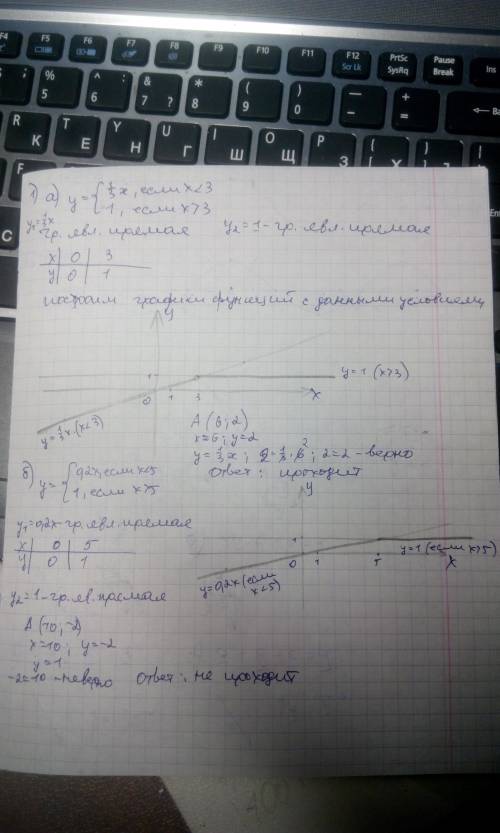 F4 F5 F6 F7 F8 F9 F10 F11 F12 Scr Lk PrtSc SysRq Pause Break Ins
; % 5 ^ : 6 & 7 ? * 8 ( 9 ) 0 — - + =
R К T Е Y Н U Г I Ш O Щ P З
1) а) y = { 1/3 x, если x<3
1, если x>3
y₁ = 1/3 x
гр. явл. прямая y₂ = 1 - гр. явл. прямая
x 0 3
y 0 1
построим графики функций с данными условием
y
1
0 1 3 x
y = 1 (x>3)
y = 1/3 x (x<3)
A (6; 2)
x=6; y=2
y = 1/3 x; 2 = 1/3 · 6 2; 2=2 - верно
Ответ: проходит
б) y = { 0,2x, если x<5
1, если x>5
y₁=0,2x - гр. явл. прямая
x 0 5
y 0 1
y
1
0 1 5 x
y=1 (если x>5)
y=0,2x (если x<5)
y₂=1 - гр. яв. прямая
A (10; -2)
x=10; y=-2
y=1
-2=10 - неверно Ответ: не проходит